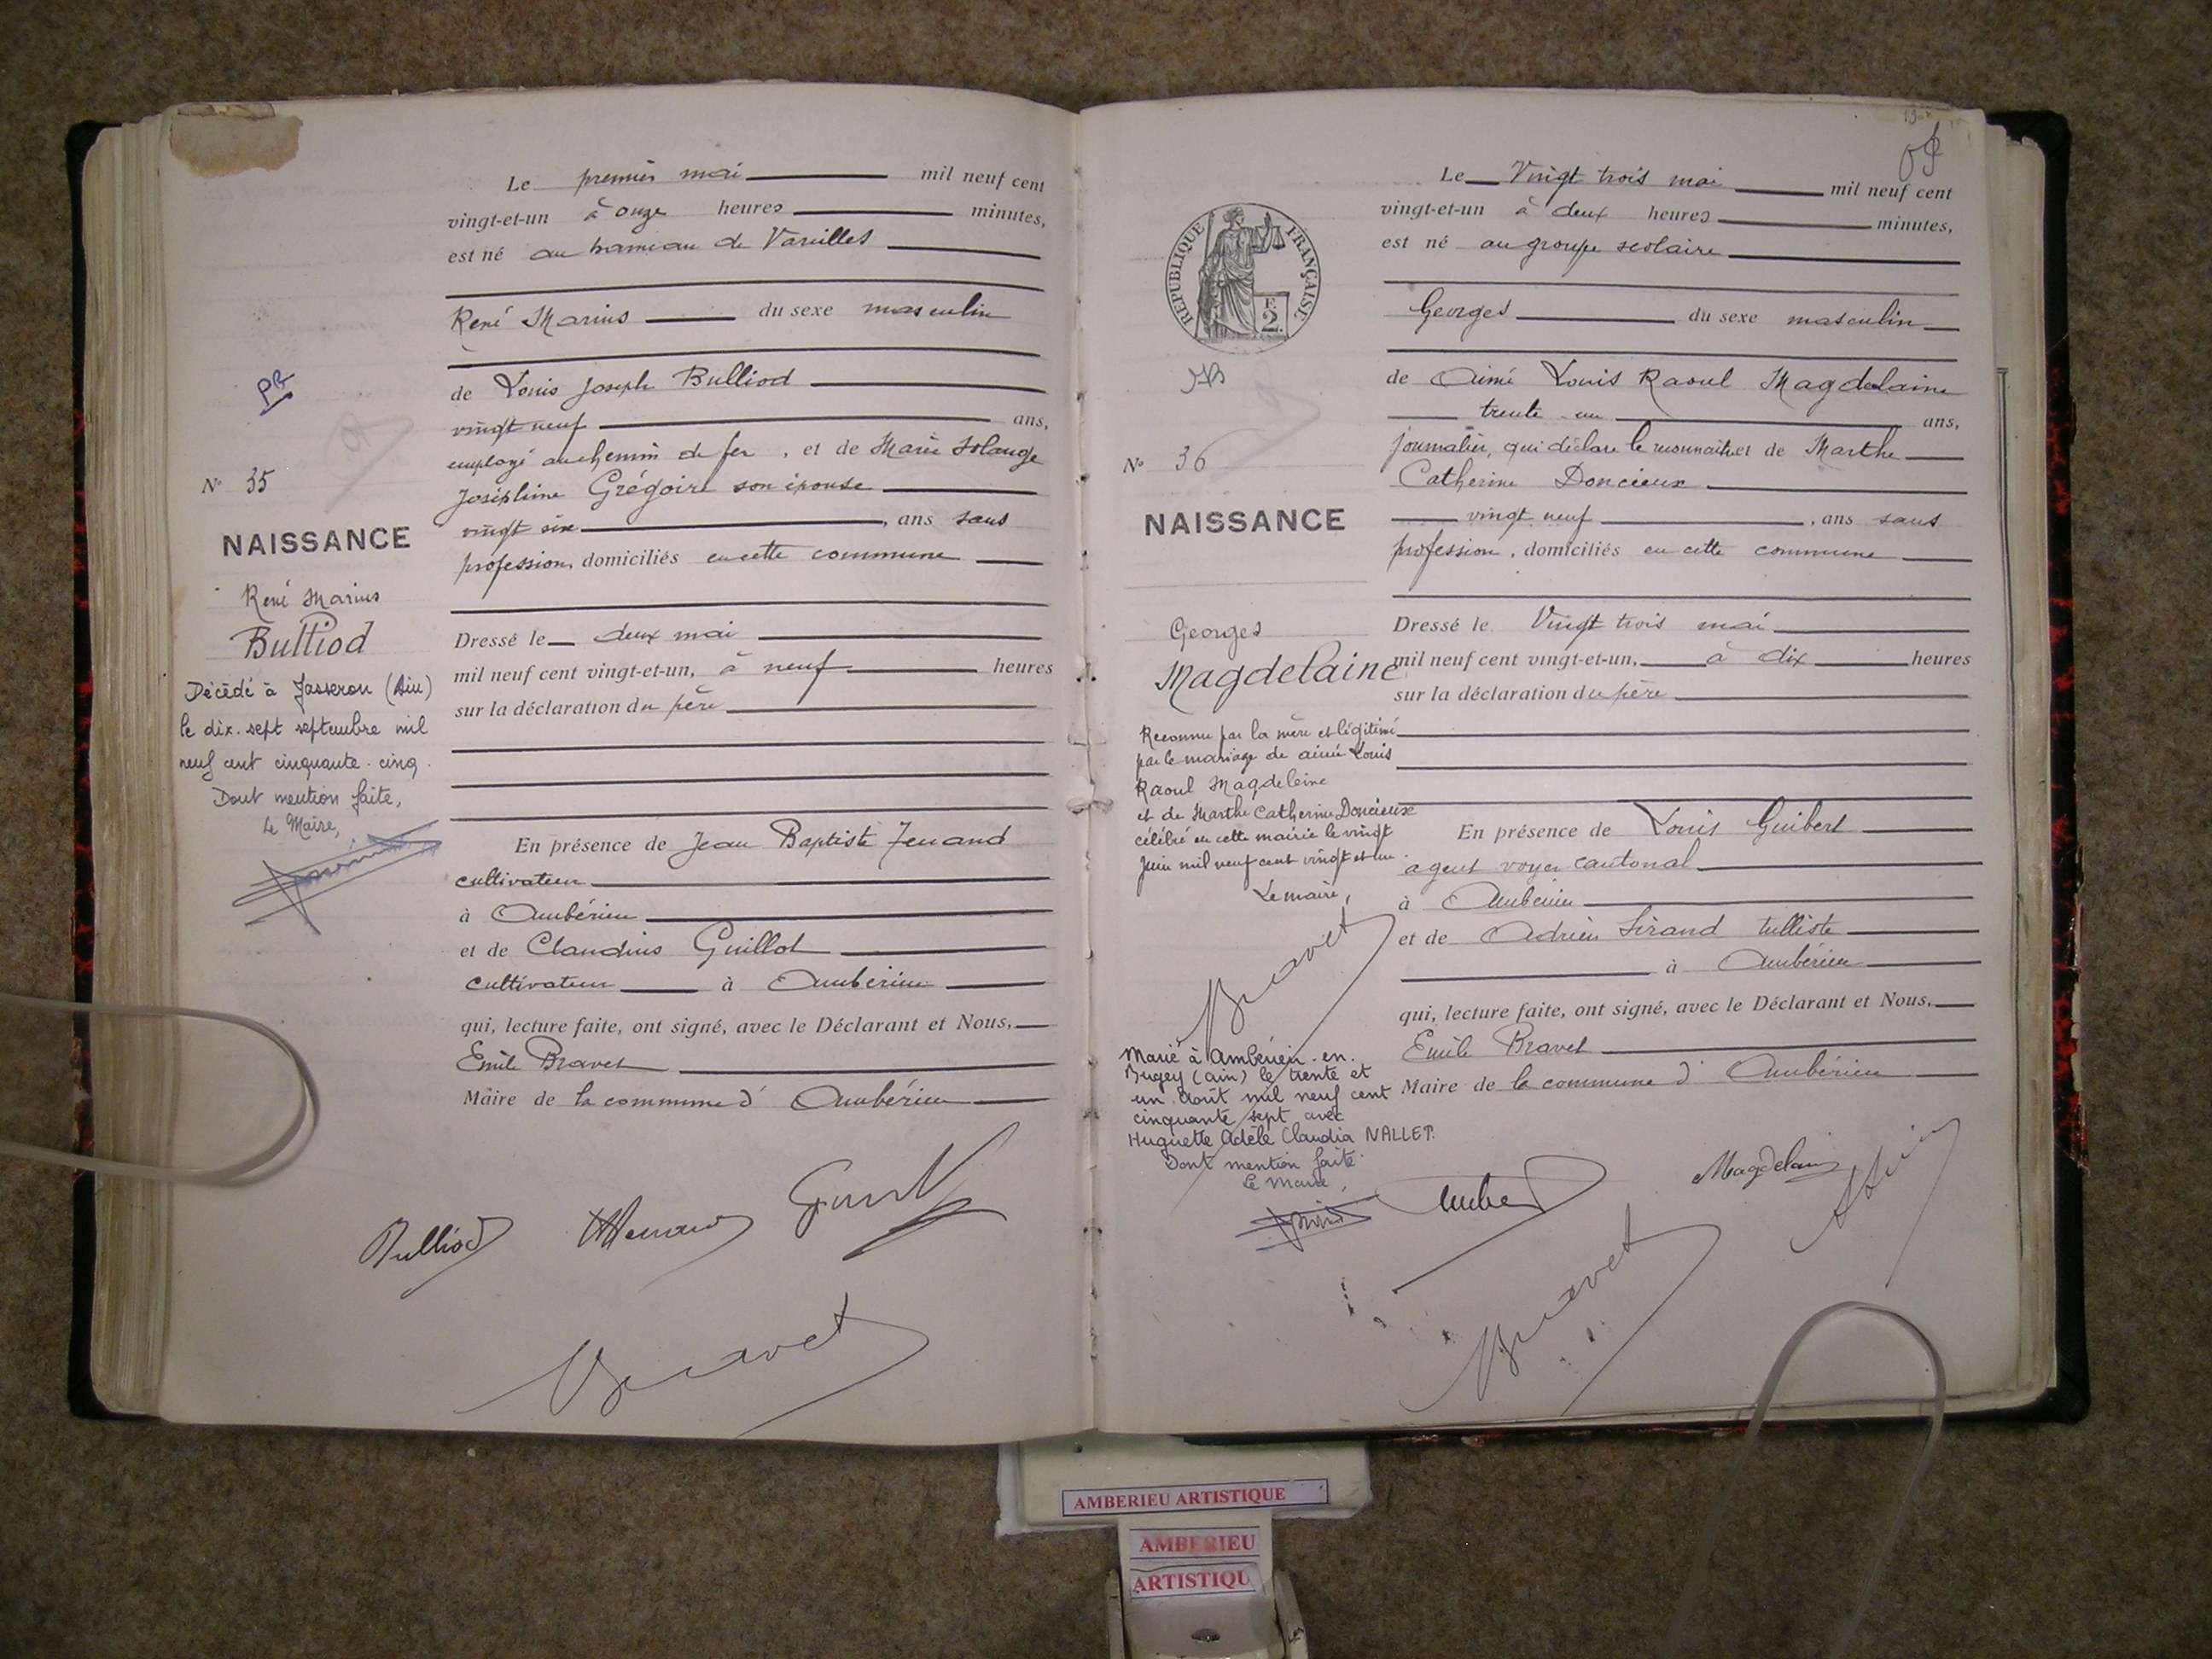 PB
N° 35
NAISSANCE
René Marius
Bulliod
Décédé à Jasseron (Ain)
le dix-sept septembre mil
neuf cent cinquante-cinq.
Dont mention faite,
Le Maire,
Le premier mai mil neuf cent
vingt-et-un à onze heures minutes,
est né au hameau de Vareilles
René Marius du sexe masculin
de Louis Joseph Bulliod
vingt neuf ans,
employé au chemin de fer, et de Marie Solange
Joséphine Grégoire son épouse
vingt six, ans sans
profession, domiciliés en cette commune
Dressé le deux mai
mil neuf cent vingt-et-un, à neuf heures
sur la déclaration du père
En présence de Jean Baptiste
cultivateur
à Ambérieu
et de Claudius Guillot
cultivateur à Ambérieu
qui, lecture faite, ont signé, avec le Déclarant et Nous,
Emile Bravet
Maire de la commune d' Ambérieu
Bulliod
Bravet
RÉPUBLIQUE FRANÇAISE
F.
2
N° 36
NAISSANCE
Georges
Magdelaine
Reconnu par la mère et légitimé
par le mariage de aimé Louis
Raoul Magdeleine
et de Marthe Catherine Doncieux
célébré en cette mairie le vingt
juin mil neuf cent vingt et un.
Le maire,
Bravet
Marié à Ambérieu-en-
Bugey (ain) le trente et
un août mil neuf cent
cinquante sept avec
Huguette Adèle Claudia NALLET.
Dont mention faite.
Le Maire,
Le Vingt trois mai mil neuf cent
vingt-et-un à deux heures minutes,
est né au groupe scolaire
Georges du sexe masculin
de Aimé Louis Raoul Magdelaine
trente un ans,
journalier, qui déclare le reconnaitre et de Marthe
Catherine Doncieux
vingt neuf, ans sans
profession, domiciliés en cette commune
Dressé le Vingt trois mai
mil neuf cent vingt-et-un, à dix heures
sur la déclaration du père
En présence de Louis Guibert
agent voyer cantonal
à Ambérieu
et de Adrien Sirand tulliste
à Ambérieu
qui, lecture faite, ont signé, avec le Déclarant et Nous,
Emile Bravet
Maire de la commune d' Ambérieu
Magdelaine
Bravet
AMBERIEU ARTISTIQUE
AMBERIEU
ARTISTIQU